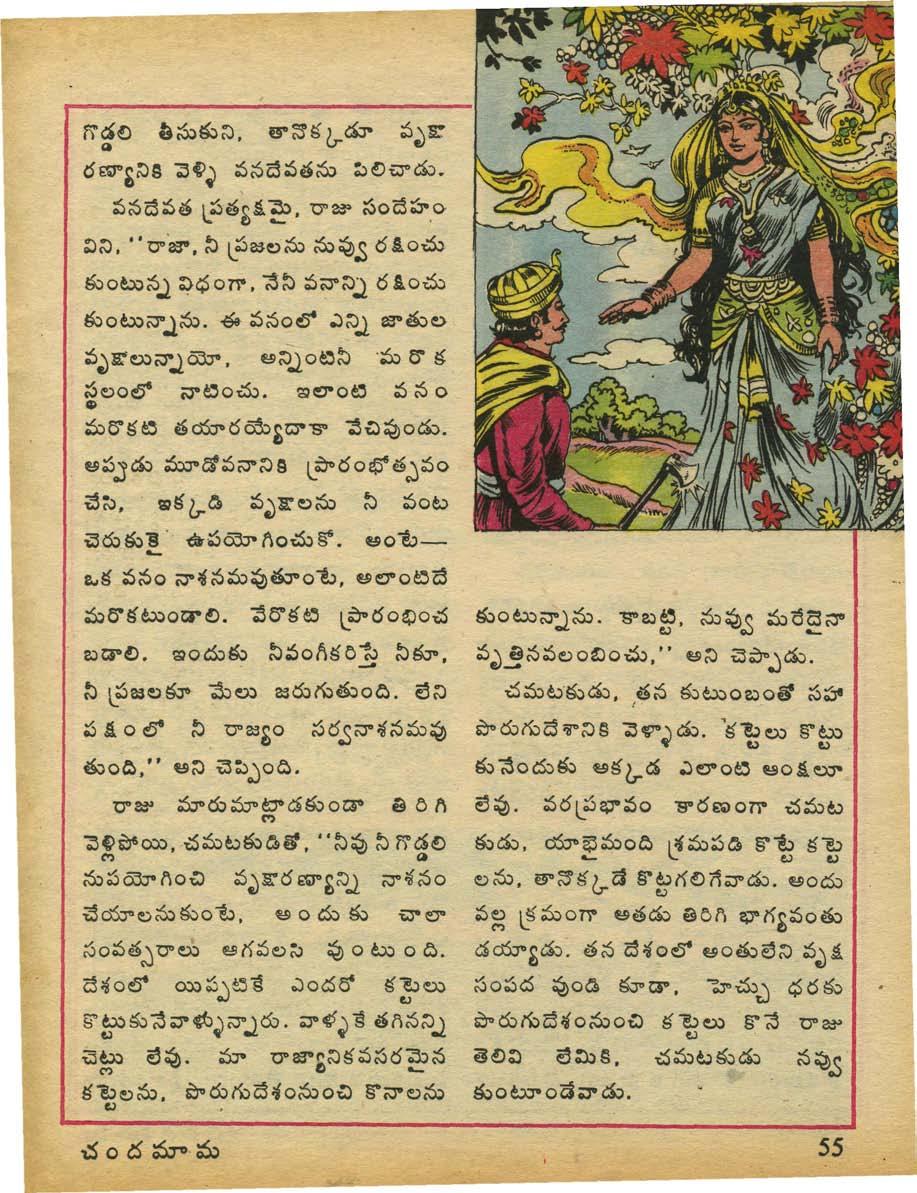 గొడ్డలి తీసుకుని, తానొక్కడూ వృక్షా
రణ్యానికి వెళ్ళి వనదేవతను పిలిచాడు.
వనదేవత ప్రత్యక్షమై, రాజు సందేహం
విని, ''రాజా, నీ ప్రజలను నువ్వు రక్షించు
కుంటున్న విధంగా, నేనీ వనాన్ని రక్షించు
కుంటున్నాను. ఈ వనంలో ఎన్ని జాతుల
వృక్షాలున్నాయో, అన్నింటినీ మరొక
స్థలంలో నాటించు. ఇలాంటి వనం
మరొకటి తయారయ్యేదాకా వేచివుండు.
అప్పుడు మూడోవనానికి ప్రారంభోత్సవం
చేసి, ఇక్కడి వృక్షాలను నీ వంట
చెరుకుకై ఉపయోగించుకో. అంటే—
ఒక వనం నాశనమవుతూంటే, అలాంటిదే
మరొకటుండాలి. వేరొకటి ప్రారంభించ
బడాలి. ఇందుకు నీవంగీకరిస్తే నీకూ,
నీ ప్రజలకూ మేలు జరుగుతుంది. లేని
పక్షంలో నీ రాజ్యం సర్వనాశనమవు
తుంది,'' అని చెప్పింది.
రాజు మారుమాట్లాడకుండా తిరిగి
వెళ్లిపోయి, చమటకుడితో, ''నీవు నీ గొడ్డలి
నుపయోగించి వృక్షారణ్యాన్ని నాశనం
చేయాలనుకుంటే, అందుకు చాలా
సంవత్సరాలు ఆగవలసి వుంటుంది.
దేశంలో యిప్పటికే ఎందరో కట్టెలు
కొట్టుకునేవాళ్ళున్నారు. వాళ్ళకే తగినన్ని
చెట్లు లేవు. మా రాజ్యానికవసరమైన
కట్టెలను, పొరుగుదేశంనుంచి కొనాలను
కుంటున్నాను. కాబట్టి, నువ్వు మరేదైనా
వృత్తినవలంబించు,'' అని చెప్పాడు.
చమటకుడు, తన కుటుంబంతో సహా
పొరుగుదేశానికి వెళ్ళాడు. కట్టెలు కొట్టు
కునేందుకు అక్కడ ఎలాంటి ఆంక్షలూ
లేవు. వరప్రభావం కారణంగా చమట
కుడు, యాభైమంది శ్రమపడి కొట్టే కట్టె
లను, తానొక్కడే కొట్టగలిగేవాడు. అందు
వల్ల క్రమంగా అతడు తిరిగి భాగ్యవంతు
డయ్యాడు. తన దేశంలో అంతులేని వృక్ష
సంపద వుండి కూడా, హెచ్చు ధరకు
పొరుగుదేశంనుంచి కట్టెలు కొనే రాజు
తెలివి లేమికి, చమటకుడు నవ్వు
కుంటూండేవాడు.
చందమామ
55